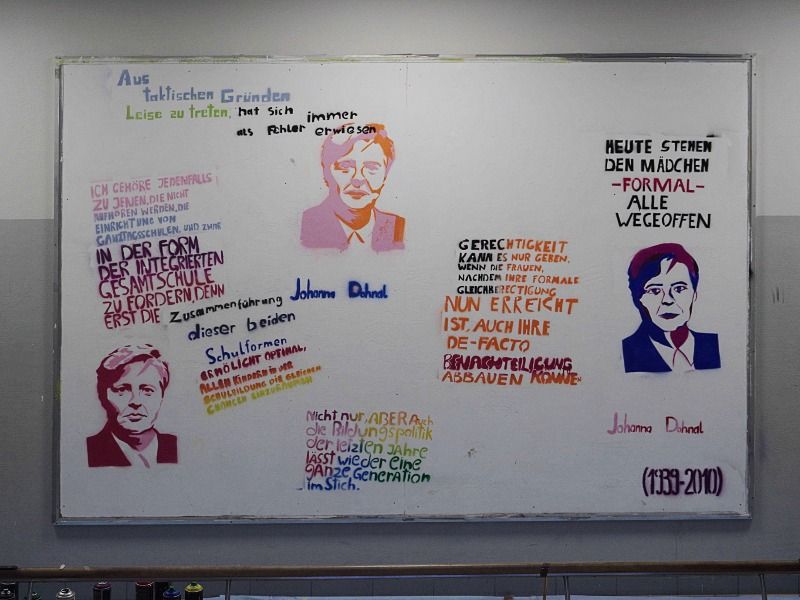 Aus
taktischen Gründen
Leise zu treten, hat sich immer
als Fehler erwiesen
ICH GEHÖRE JEDENFALLS
ZU JENEN, DIE NICHT
AUFHÖREN WERDEN, DIE
EINRICHTUNG VON
GANZTAGSSCHULEN, UND ZWAR
IN DER FORM
DER INTEGRIERTEN
GESAMTSCHULE
ZU FORDERN, DENN
ERST DIE Zusammenführung
dieser beiden
Schulformen
ERMÖLICHT OPTIMAL,
ALLEN KINDERN IN DER
SCHULBILDUNG DIE GLEICHEN
CHANCEN EINZURÄUMEN
Johanna Dohnal
Nicht nur, ABER Auch
die Bildungspolitik
der letzten Jahre
lässt wieder eine
gANze Generation
im Stich.
GERECHTIGKEIT
KANN ES NUR GEBEN,
WENN DIE FRAUEN,
NACHDEM IHRE FORMALE
GLEICHBERECTIGUNG
NUN ERREICHT
IST, AUCH IHRE
DE-FACTO
BENACHTEILIGUNG
ABBAUEN KÖNNEN
HEUTE STEHEN
DEN MÄDCHEN
-FORMAL-
ALLE
WEGE OFFEN
Johanna Dohnal
(1939-2010)